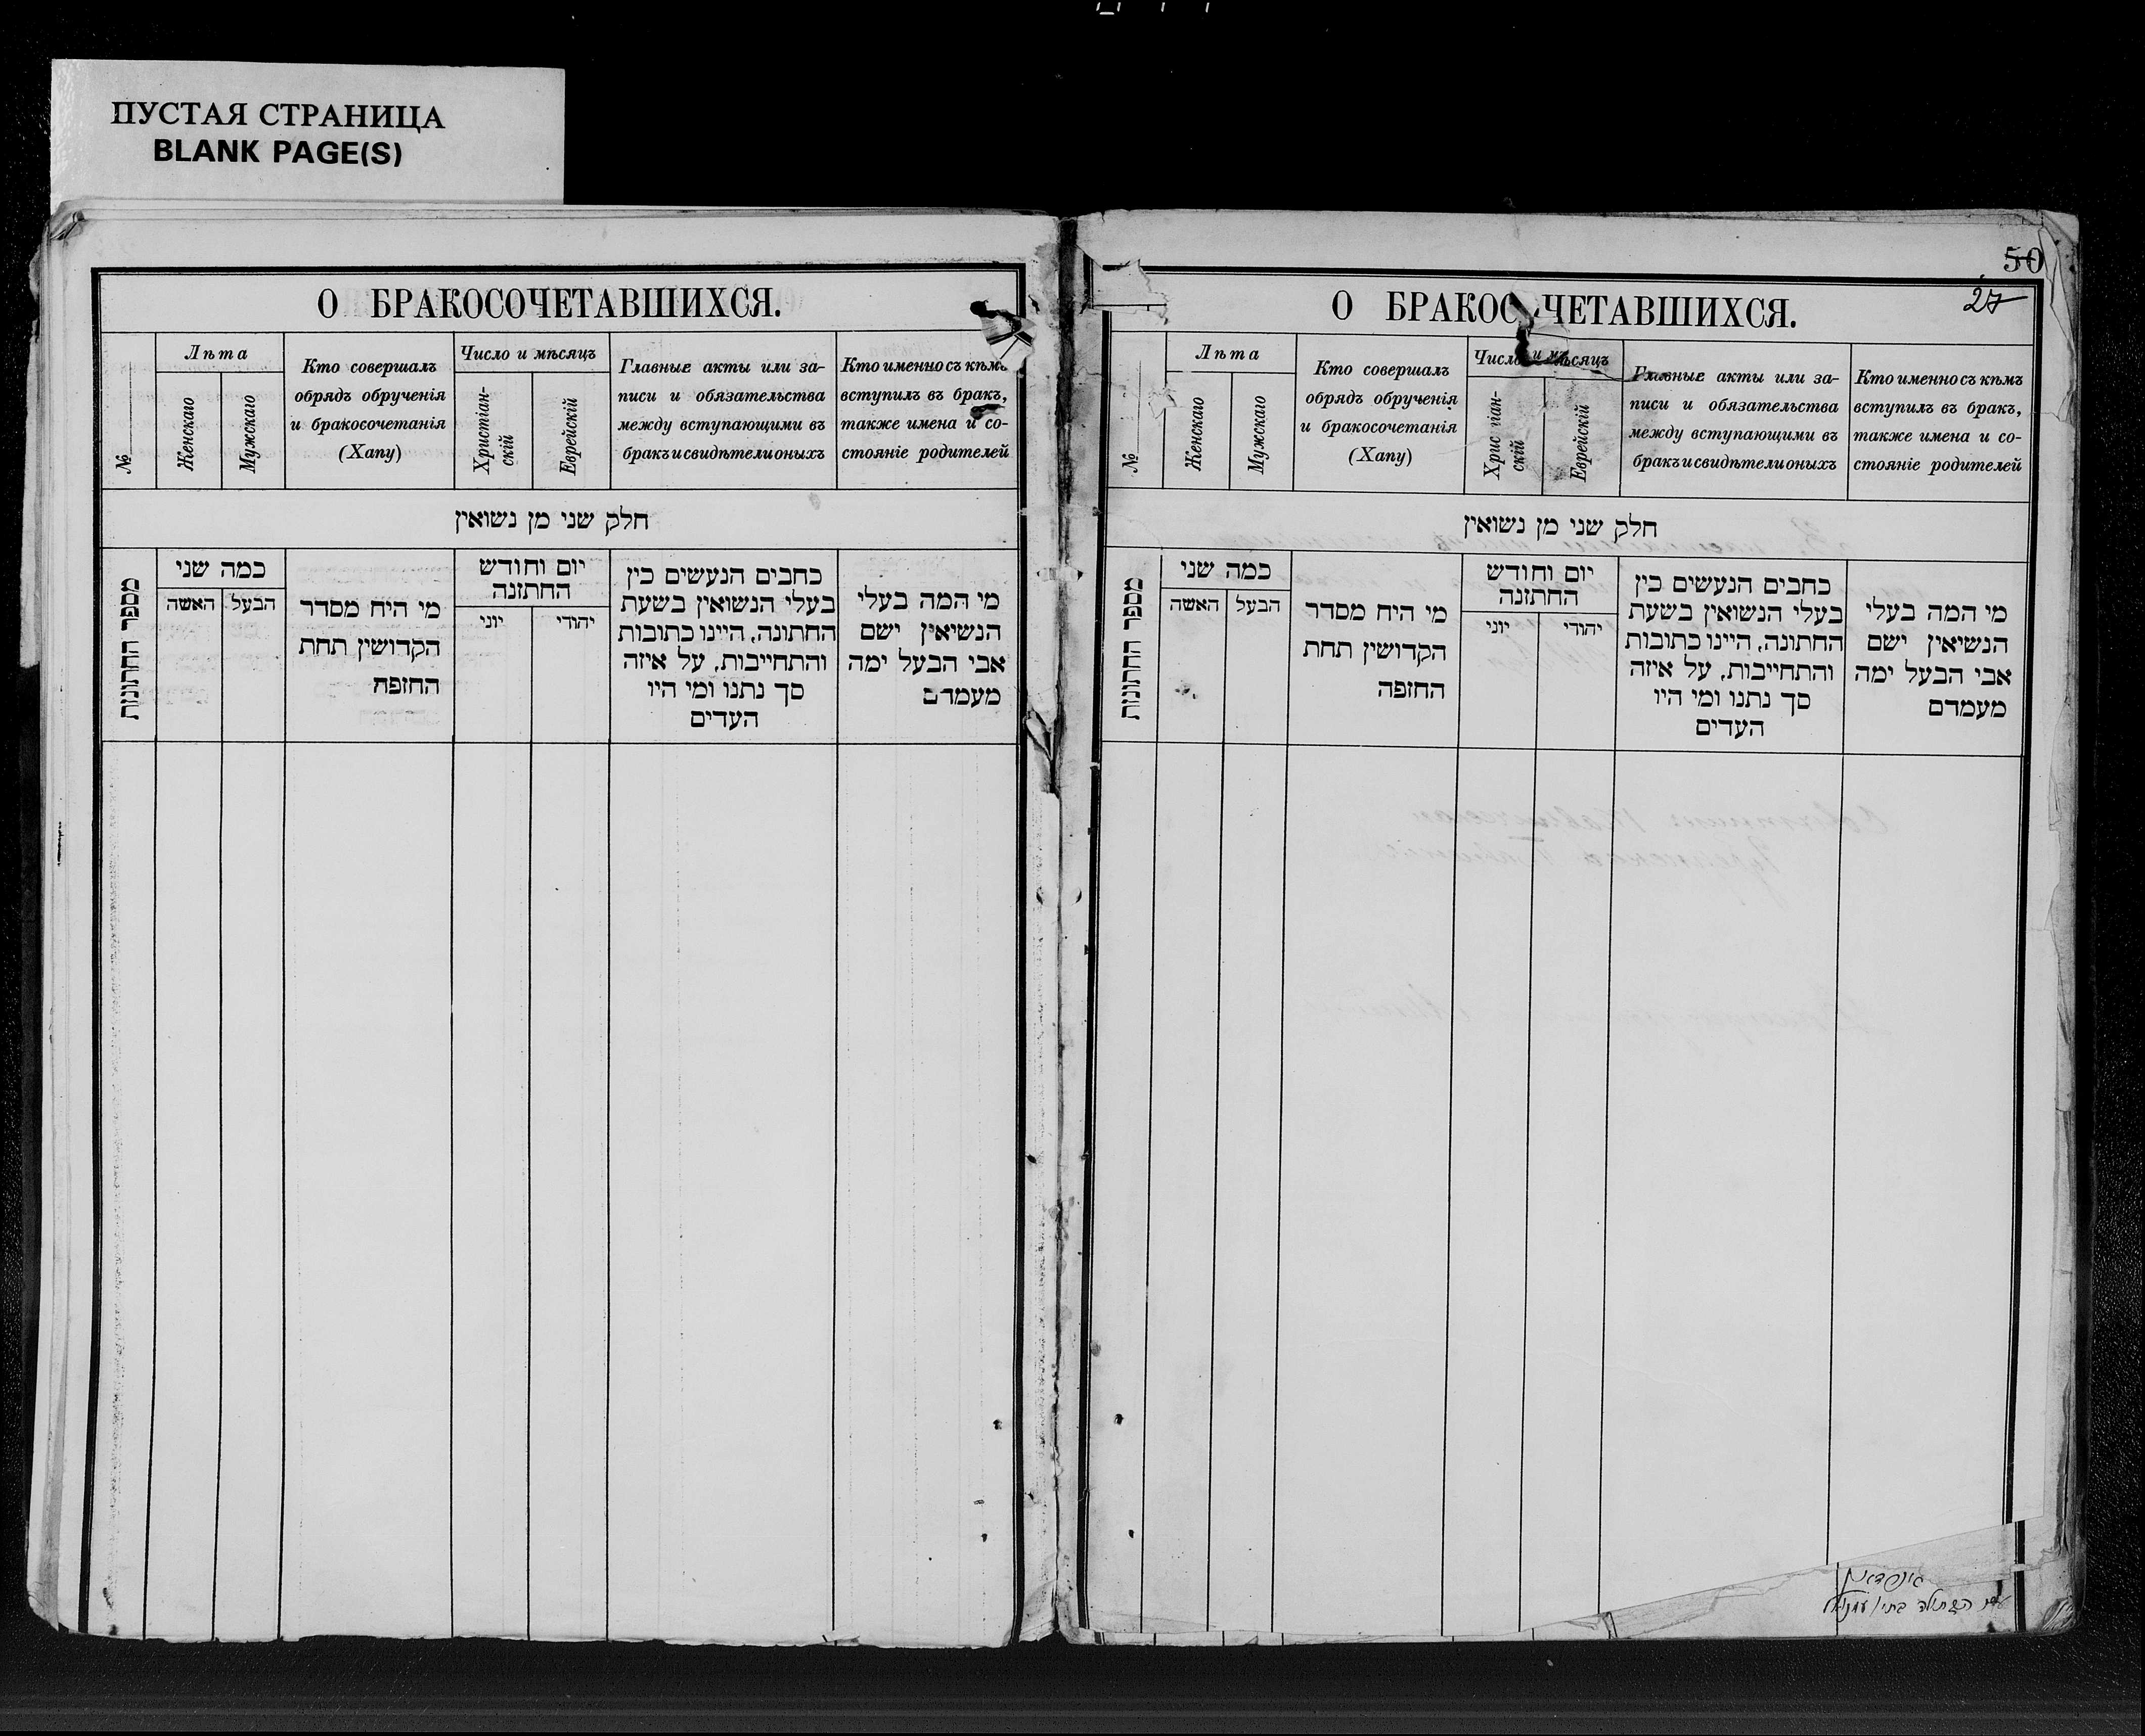 ПУСТАЯ СТРАНИЦА
BLANK PAGE(S)
О БРАКОСОЧЕТАВШИХСЯ.
№
Лѣта
Женскаго
Мужскаго
Кто совершалъ
обрядъ обрученія
и бракосочетанія
(Хапу)
Число и мѣсяцъ
Христіан-
скій
Еврейскій
Главные акты или за-
писи и обязательства
между вступающими въ
бракъ и свидѣтели оныхъ
Кто именно съ кѣмъ
вступилъ въ бракъ,
также имена и со-
стояніе родителей
חלק שני מן נשואין
מספר החתונות
כמה שני
האשה
הבעל
מי היח מסדר
הקדושין תחת
החופה
יום וחודש
החתונה
יוני
יהודי
כחבים הנעשים כין
בעלי הנשואין בשעת
החתונה, היינו כתובות
והתחייבות, על איזה
סך נתנו ומי היו
העדים
מי המה בעלי
הנשיאין ישם
אבי הבעל ימה
מעמדם
50
27
О БРАКОС ЧЕТАВШИХСЯ.
№
Лѣта
Женскаго
Мужскаго
Кто совершалъ
обрядъ обрученія
и бракосочетанія
(Хапу)
Число и мѣсяцъ
Хрис іан-
скій
Еврейскій
Главные акты или за-
писи и обязательства
между вступающими въ
бракъ и свидѣтели оныхъ
Кто именно съ кѣмъ
вступилъ въ бракъ,
также имена и со-
стояніе родителей
חלק שני מן נשואין
מספר החתונות
כמה שני
האשה
הבעל
מי היח מסדר
הקדושין תחת
החופה
יום וחודש
החתונה
יוני
יהודי
כחבים הנעשים כין
בעלי הנשואין בשעת
החתונה, היינו כתובות
והתחייבות, על איזה
סך נתנו ומי היו
העדים
מי המה בעלי
הנשיאין ישם
אבי הבעל ימה
מעמדם